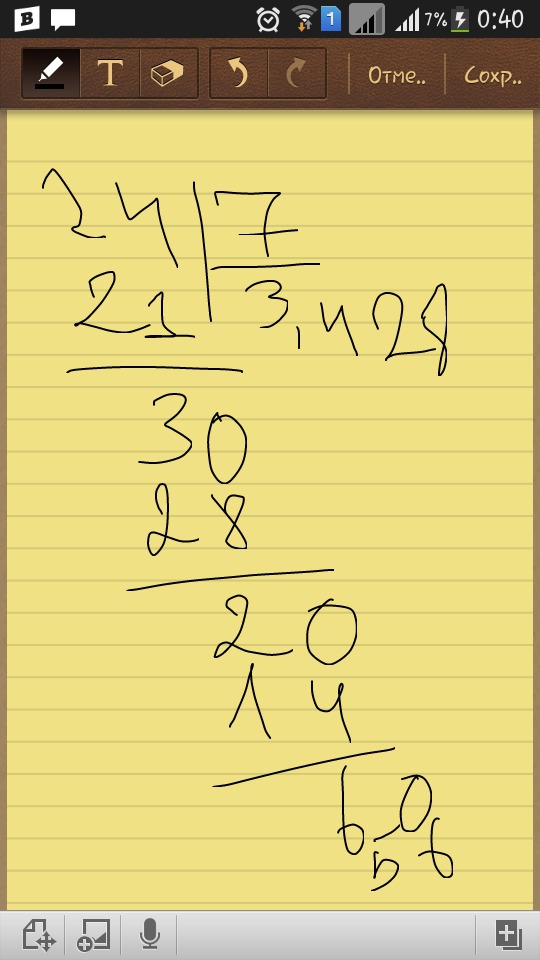 7% 0:40
T Отме.. Сохр..
24 7
21 3,428
30
28
20
14
60
56